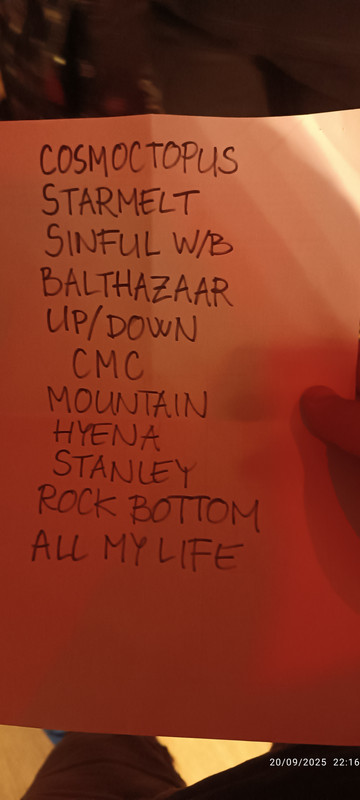 COSMOCTOPUS
STARMELT
SINFUL W/B
BALTHAZAAR
UP/DOWN
CMC
MOUNTAIN
HYENA
STANLEY
ROCK BOTTOM
ALL MY LIFE
20/09/2025 22:16